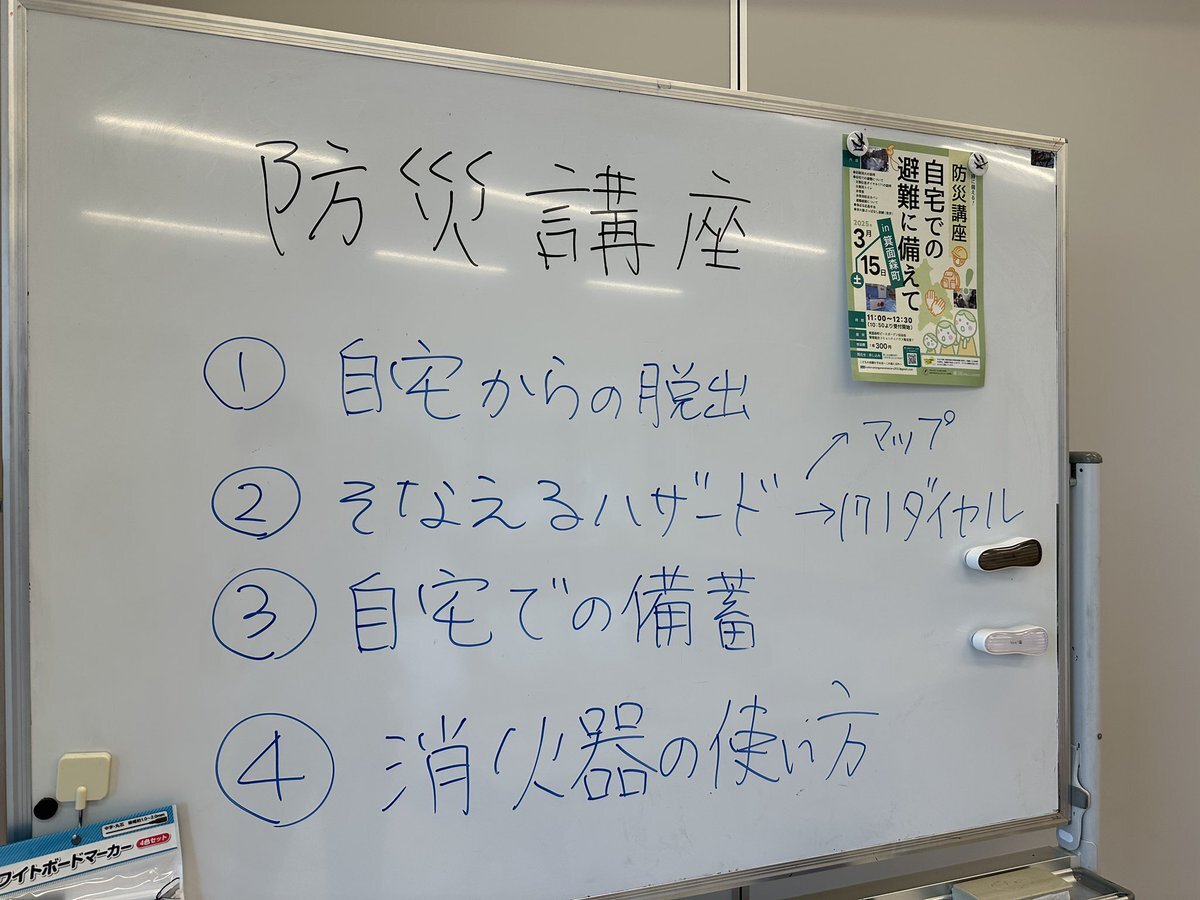 防災講座
① 自宅からの脱出
② そなえるハザード →マップ
→171ダイヤル
③ 自宅での備蓄
④ 消火器の使い方
防災講座
自宅での
避難に備えて
in 箕面森町
2025年
3月
15日
土
11:00〜12:30
(10:50より受付開始)
300円
中字・丸芯
4色セット
ワイトボードマーカー